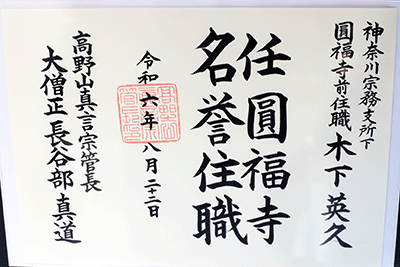 神奈川宗務支所下
圓福寺前住職 木下英久
任圓福寺
名誉住職
令和六年八月二十二日
高野山真言宗管長
大僧正 長谷部真道